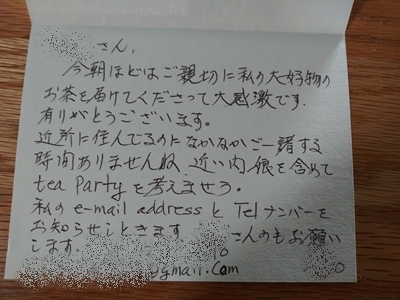 さん、
今朝ほどはご親切に私の大好物の
お茶を届けてくださって大感激です.
有りがとうございます。
近所に住んでるのになかなかご一緒する
時間ありませんね. 近い内 娘を含めて
tea Partyを考えませう。
私の e-mail address と Telナンバーを
お知らせしときます さんのもお願い
します.
@gmail.com